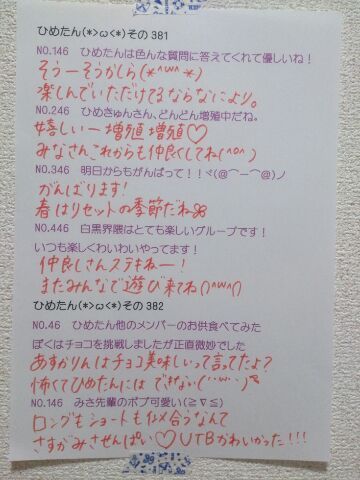 ひめたん(*>ω<*)その381
NO.146　ひめたんは色んな質問に答えてくれて優しいね！
そうーそうかしら(*^w^*)
楽しんでいただけてるならなにより。
NO.246　ひめきゅんさん、どんどん増殖中だね。
嬉しいー増殖増殖♡
みなさんこれからも仲良くしてね(^o^)
NO.346　明日からもがんばって！！ヾ(@⌒ー⌒@)ノ
がんばります！
春はリセットの季節だね
NO.446　白黒界隈はとても楽しいグループです！
いつも楽しくわいわいやってます！
仲良しさんステキねー！
またみんなで遊び来てね(^w^)
ひめたん(*>ω<*)その382
NO.46　ひめたん他のメンバーのお供食べてみた
ぼくはチョコを挑戦しましたが正直微妙でした
あすかりんはチョコ美味しいって言ってたよ？
怖くてひめたんには できない(´･w･`)
NO.146　みさ先輩のボブ可愛い(≧∇≦)
ロングもショートも似合うなんて
さすがみさせんぱい♡UTBかわいかった!!!